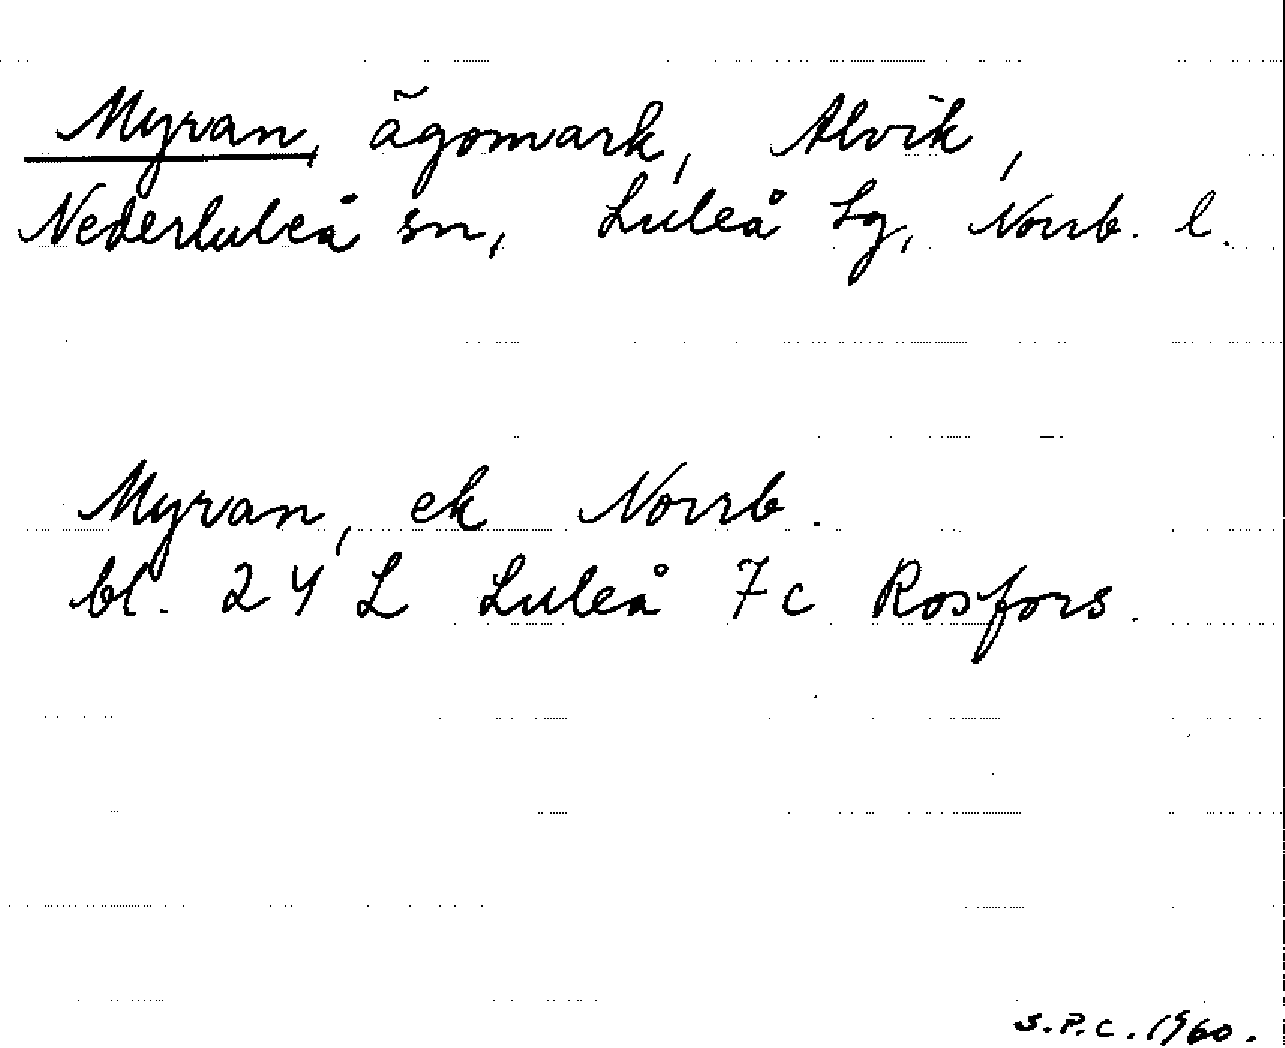 Myran, ägomark, Alvik,
Nederluleå sn, Luleå tg, Norrb. l.
Myran, ek Norrb.
bl. 24 L Luleå 7c Rosfors.
S.P.C. 1960.